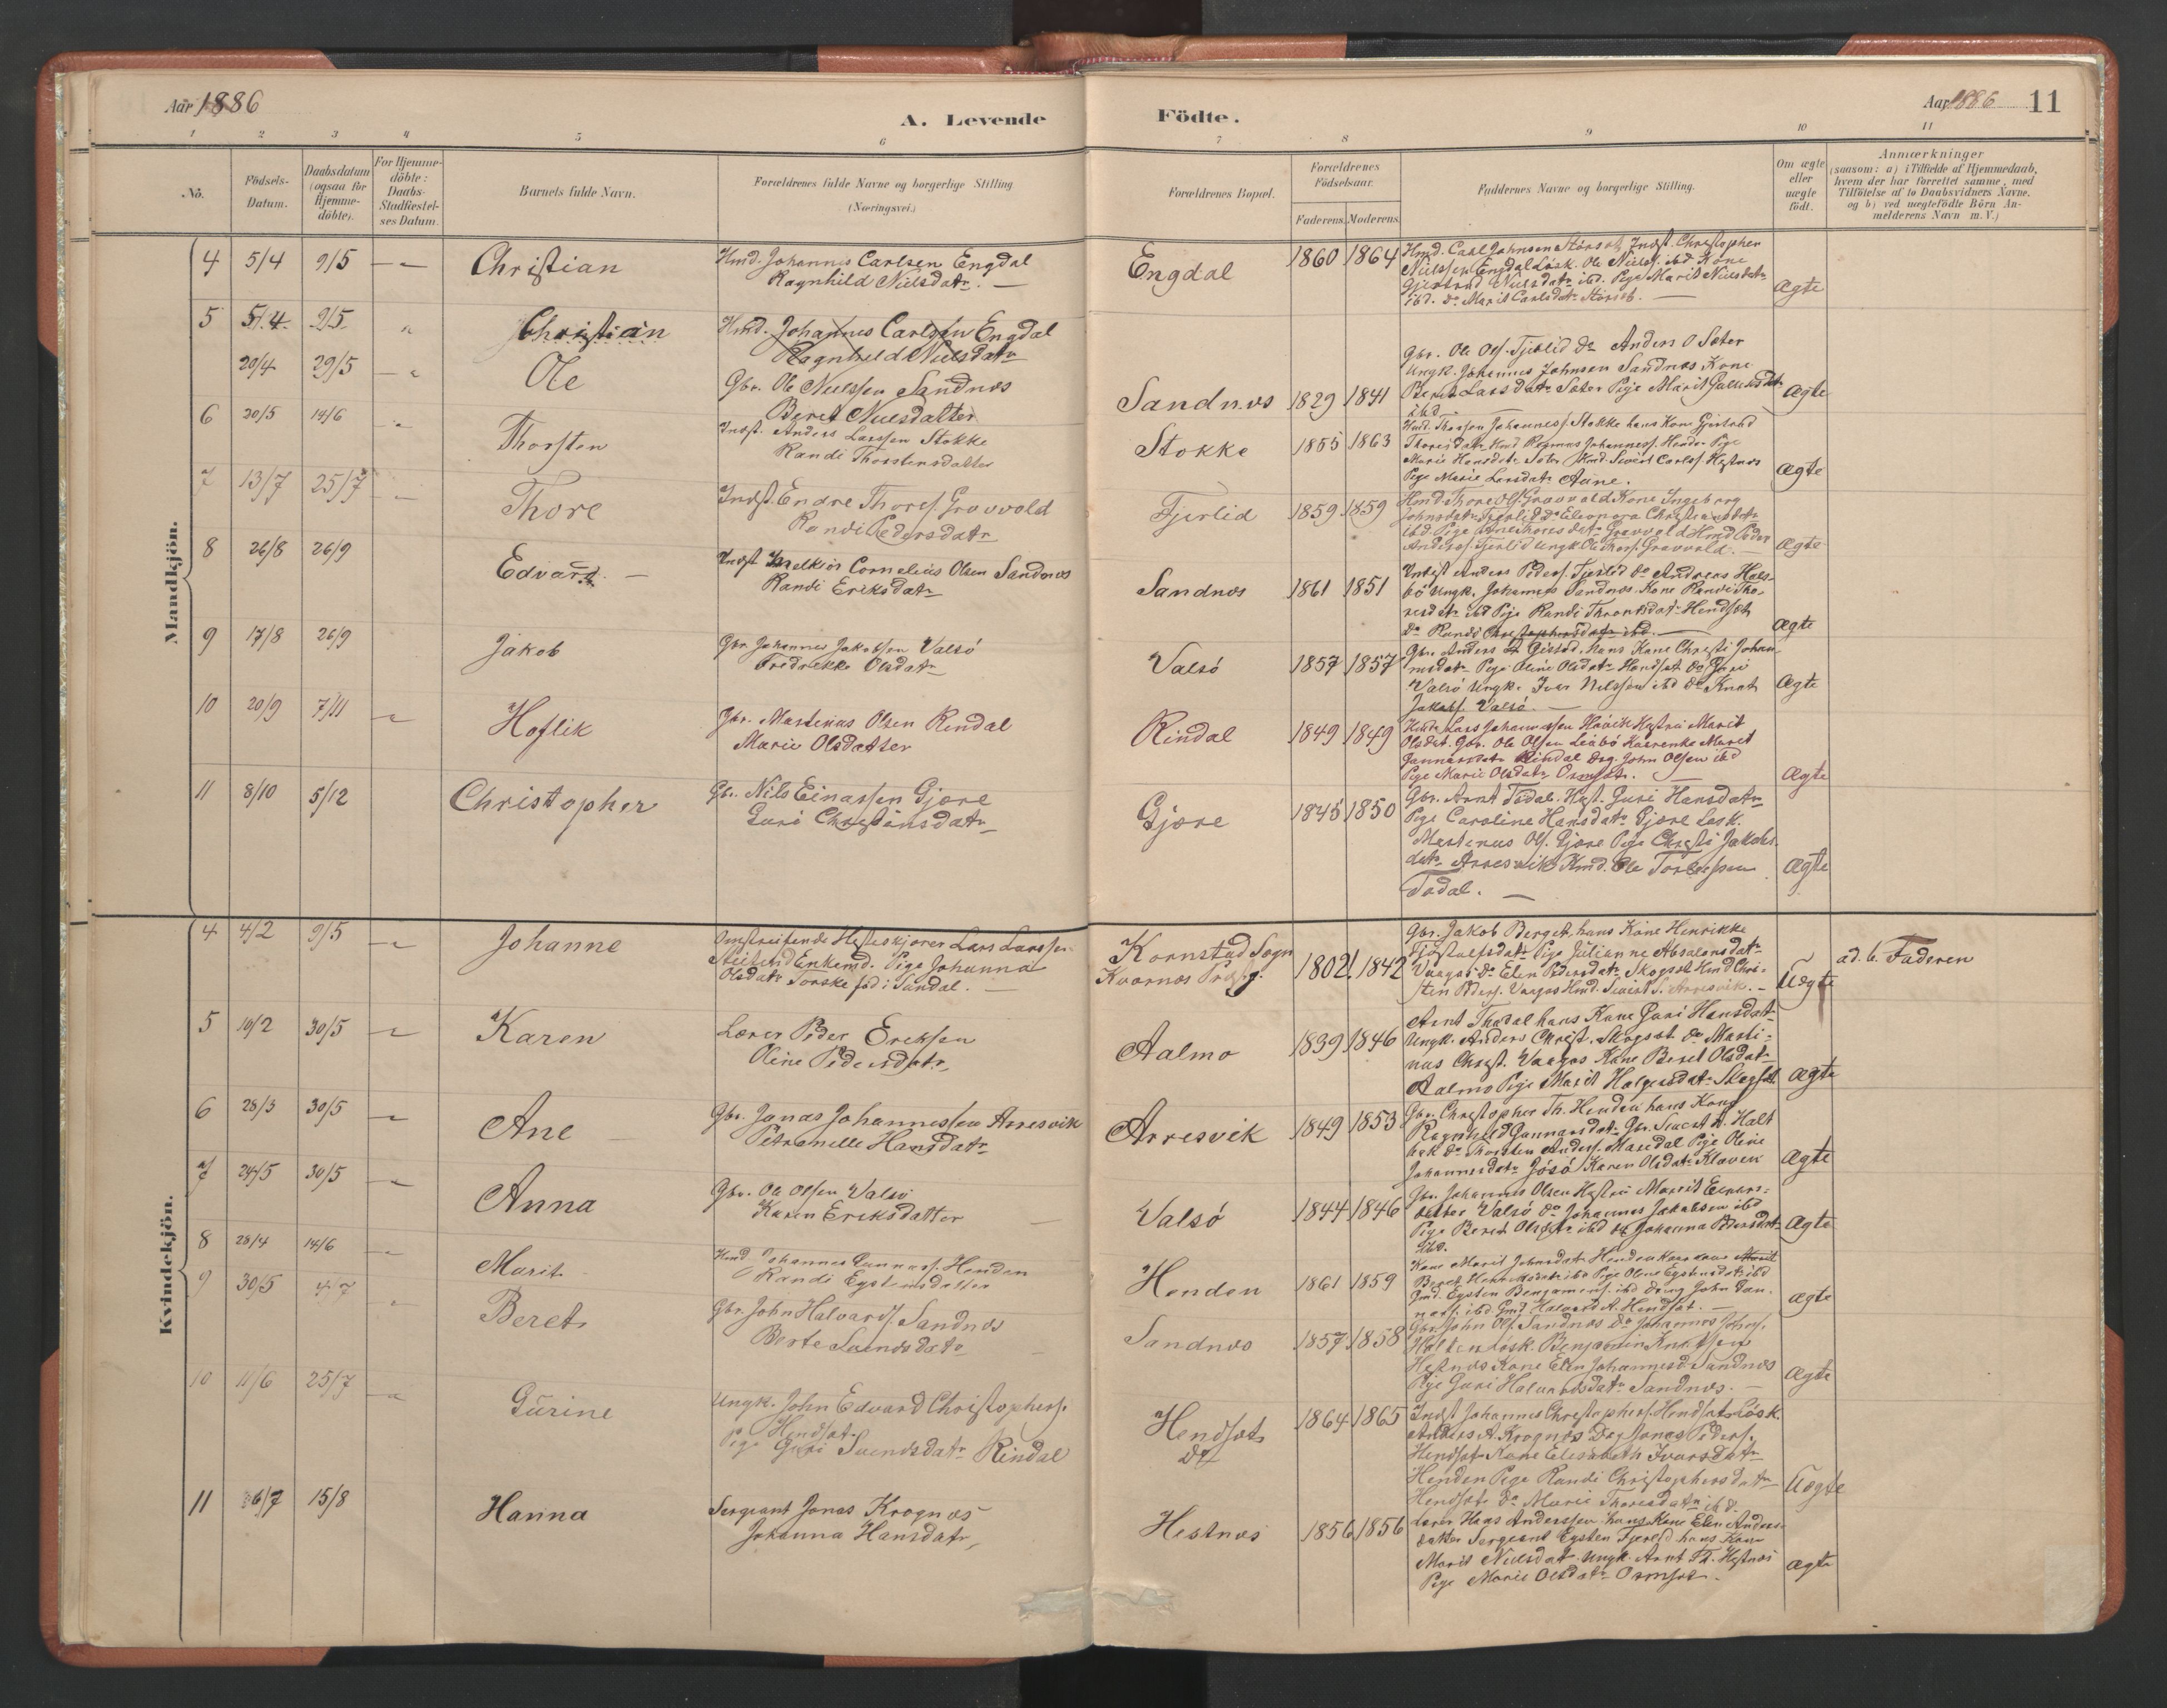 Aar 1886
A. Levende
Födte.
Aar 1886 11
1 2 3 4 5 6 7 8 9 10 11
No.
Födsels-Datum.
Daabsdatum (ogsaa for Hjemme-döbte).
For Hjemme-döbte: Daabs-Stadfæstel-ses Datum.
Barnets fulde Navn.
Forældrenes fulde Navne og borgerlige Stilling
(Næringsvei.)
Forældrenes Bopæl.
Forældrenes Födselsaar.
Faderens. Moderens.
Faddernes Navne og borgerlige Stilling.
Om ægte eller uægte födt.
Anmærkninger
(saasom: a) i Tilfælde af Hjemmedaab,
hvem der har forrettet samme, med
Tilföielse af to Daabsvidners Navne.
og b) ved uægtefödte Börn An-
melderens Navn m. V.)
Mandkjön.
4 5/4 9/5 Christian
Hmd. Johannes Carlsen Engdal
Ragnhild Nielsdatr.
Engdal 1860 1864
Hmd. Carl Johnsen Störset, Indst. Christopher
Nielssen Engdal Lösk. Ole Nielss. ibd Kone
Gjertrud Nielsdatr ibd. Pige Marit Nielsdatr
ibd. Do Marit Carlsdatr Störset.
Ægte
5 5/4 9/5 Christian
Hmd. Johannes Carlssen Engdal
Ragnhild Nielsdatr
20/4 29/5 Ole
Gbr. Ole Nielssen Sandnæs
Beret Nielsdatter
Sandnæs 1829 1841
Gbr. Ole Ols. Fjerlid Do Anders O Sæter
Ungk. Johannes Johnsen Sandnæs Kone
Beret Larsdatr Sæter Pige Marit
ibd
Ægte
6 20/5 14/6 Thorsten
Indst. Anders Larssen Stokke
Randi Thorstensdatter
Stokke 1855 1863
Hmd. Thorsen Johanness. Stokke hans Kone Gjertrud
Thoresdatr Hmd Rasmus Johanness. Henden Pige
Marie Hansdatr Sæter Hmd. Sivert Carlss. Hestnæs
Pige Marie Larsdatr Aune.
Ægte
7 13/7 25/7 Thore
Indst. Endre Thores. Gravvold
Randi Pedersdatr
Fjerlid 1859 1859
Hmd. Thore Ols. Gravvold Kone Ingeborg
Johnsdatr Fjerlid Do Eleonora Christiansdatr
ibd. Pige Ane Thoresdatr Gravvold Hmd Peder
Anderss. Fjerlid Ungk. Ole Thors. Gravvold.
Ægte
8 26/8 26/9 Edvard.
Indst Melkior Cornelius Olsen Sandnæs
Randi Eriksdatr
Sandnæs 1861 1851
Indst Anders Peders. Fjerlid Do Andreas Hals-
bö Ungk. Johannes Sandnæs. Kone Randi Tho-
resdatr ibd Pige Randi Throndsdatr Hendset
Do Randi Christophersdatr ibd.
Ægte
9 17/8 26/9 Jakob
Gbr. Johannes Jakobsen Valsö
Fredrikke Olsdatr
Valsö 1857 1857
Gbr. Anders A Gistad. Hans Kone Christi Johan-
nesdatr Pige Oline Olsdatr Hendset Do Guri
Valsö Ungk. Iver Nilssen ibd Do Knut
Jakobs. Valsö.
Ægte
10 20/9 7/11 Hoflik
Gbr. Martinus Olsen Rindal
Marie Olsdatter
Rindal 1849 1849
Lars Johannessen Haavik Hustru Marit
Olsdat. Gbr. Ole Olsen Leabö Marit
Gunnarsdatr Rindal Drg. John Olsen ibd
Pige Marie Olsdatr Ormset.
Ægte
11 8/10 5/12 Christopher
Gbr. Nils Einarssen Gjøre
Guri Christinsdatr
Gjøre 1845 1850
Gbr. Arnt Todal. Hust. Guri Hansdatr
Pige Caroline Hansdatr Gjøre Lösk.
Martinus Ols. Gjøre Pige Christi Jakobs-
datr Arresvik Hmd. Ole Torlefssen
Todal.
Ægte
Kvindekjön.
4 4/2 9/5 Johanne
Omstreifende Hesteskjærer Lars Larssen
Enkemd. Pige Johanna
Olsdatr Torske fød i Sundal.
Kornstad Sogn
Kvornæs Prstgj. 1802! 1842
Gbr. Jakob Berget, hans Kone Henrikke
Tjöstolfsdatr Pige Julianne Absalonsdatr
Vaagos Do Elen Pedersdatr Skogset Hmd Chri-
sten Peders. Vaagos Hmd. Sivert S. Arresvik.
Uægte
ad. b. Faderen
5 10/2 30/5 Karen
Lærer Peder Eriksen
Oline Pedersdatr.
Aalmo 1839 1846
Arnt Thodal hans Kone Guri Hansdatr
Ungk. Anders Christ. Skogset Do Marti-
nus Christ. Vaagos Kone Beret Olsdatr
Aalmo Pige Marit Halgersdatr Skogset.
Ægte
6 28/3 30/5 Ane
Gbr. Jonas Johannessen Arresvik
Petronelle Hansdatr
Arresvik 1849 1853
Gbr. Christopher Th. Henden hans Kone
Ragnhild Gunnarsdatr Gbr. Sivert A. Halt
bak Do Thorsten Anders. Maredal Pige Oline
Johannesdatr Jösö Karen Olsdatr Kløven
Ægte
7 24/5 30/5 Anna
Gbr. Ole Olsen Valsö
Karen Eriksdatter
Valsö 1844 1846
Gbr. Johannes Olsen Hustru Marrit Einars-
datter Valsö Do Johannes Jakobsen ibd
Pige Beret Olsdatr ibd Do Johanna Pedersdatr
ibd.
Ægte
8 28/4 14/6 Marit
Hmd Johannes Gunnars. Henden
Randi Eystensdatter
Henden 1861 1859
Kone Marit Johnsdatr Henden
Beret Henriksdatr ibd Pige Oline Eystensdatr ibd
Hmd. Eysten Benjamins. ibd Dreng John Gun-
nars. ibd Hmd Halvard A. Hendset.
Ægte
9 30/5 4/7 Beret
Gbr. John Halvards. Sandnæs
Berte Svendsdatr
Sandnæs 1857 1858
Gbr. John Ols. Sandnæs Do Johannes Johns.
Halten Lösk. Benjamin Knutsen
Hestnæs Kone Elen Johannesd. Sandnæs
Pige Guri Halvardsdatr Sandnæs.
Ægte
10 11/6 25/7 Gurine
Ungk. John Edvard Christophers.
Hendset
Pige Guri Svendsdatr Rindal
Hendset
Do 1864 1865
Indst Johannes Christophers. Hendset Lösk.
Anders A. Krognæs Drg Jonas Peders.
Hendset Kone Elisabeth Ivarsdatr
Henden Pige Randi Christophersdatr
Hendset Do Marie Thoresdatr ibd.
Uægte
11 6/7 15/8 Hanna
Sergeant Jonas Krognæs
Johanna Hansdatr,
Hestnæs 1856 1856
Lærer Hans Anderssen hans Kone Elen Anders-
datter Sergeant Eysten Fjerlid hans Kone
Marit Nielsdatr Ungk. Arnt Th. Hestnæs
Pige Marie Olsdatr Ormset.
Ægte